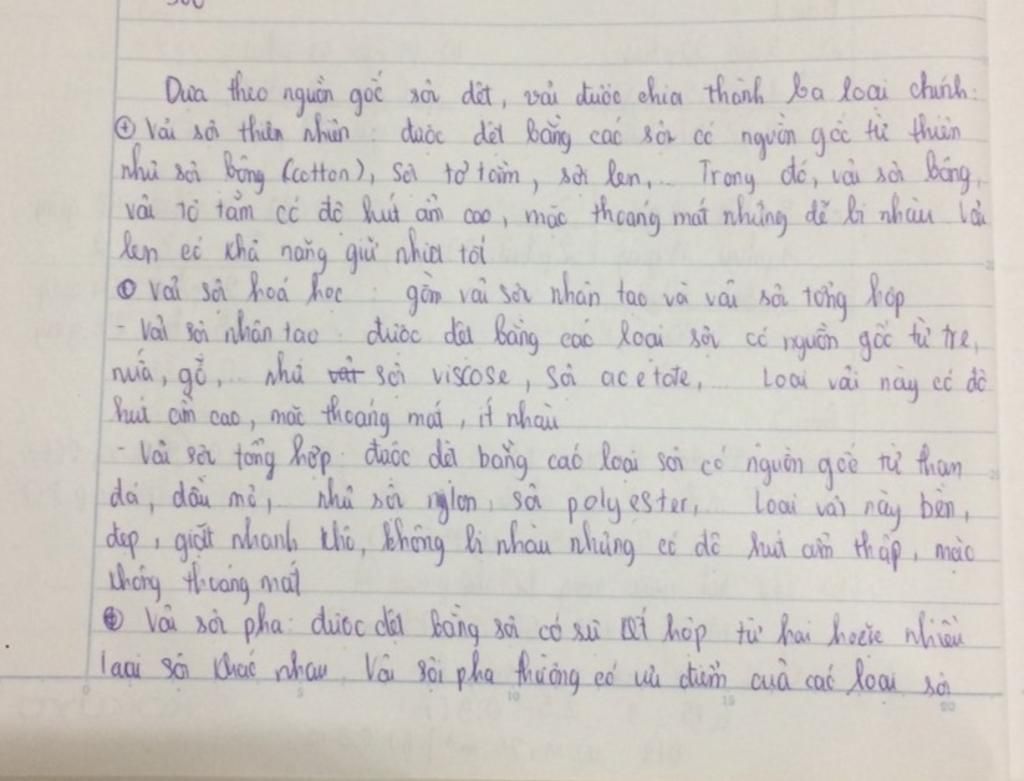 Dựa theo nguồn gốc sợi dệt, vải được chia thành ba loại chính:
⊕ Vải sợi thiên nhiên: được dệt bằng các sợi có nguồn gốc từ thiên
như sợi bông (cotton), sợi tơ tằm, sợi len,... Trong đó, vải sợi bông,
vải tơ tằm có độ hút ẩm cao, mặc thoáng mát nhưng dễ bị nhàu. Vải
len có khả năng giữ nhiệt tốt
⊕ Vải sợi hoá học: gồm vải sợi nhân tạo và vải sợi tổng hợp
Vải sợi nhân tạo: được dệt bằng các loại sợi có nguồn gốc từ tre,
nứa, gỗ,... như sợi viscose, sợi acetate,... Loại vải này có độ
hút ẩm cao, mặc thoáng mát, ít nhàu
Vải sợi tổng hợp: được dệt bằng các loại sợi có nguồn gốc từ than
đá, dầu mỏ,... như sợi nylon, sợi polyester,... Loại vải này bền,
đẹp, giặt nhanh khô, không bị nhàu nhưng có độ hút ẩm thấp, mặc
không thoáng mát
⊕ Vải sợi pha: được dệt bằng sợi có sự kết hợp từ hai hoặc nhiều
loại sợi khác nhau. Vải sợi pha thường có ưu điểm của các loại sợi
0 5 10 15 20